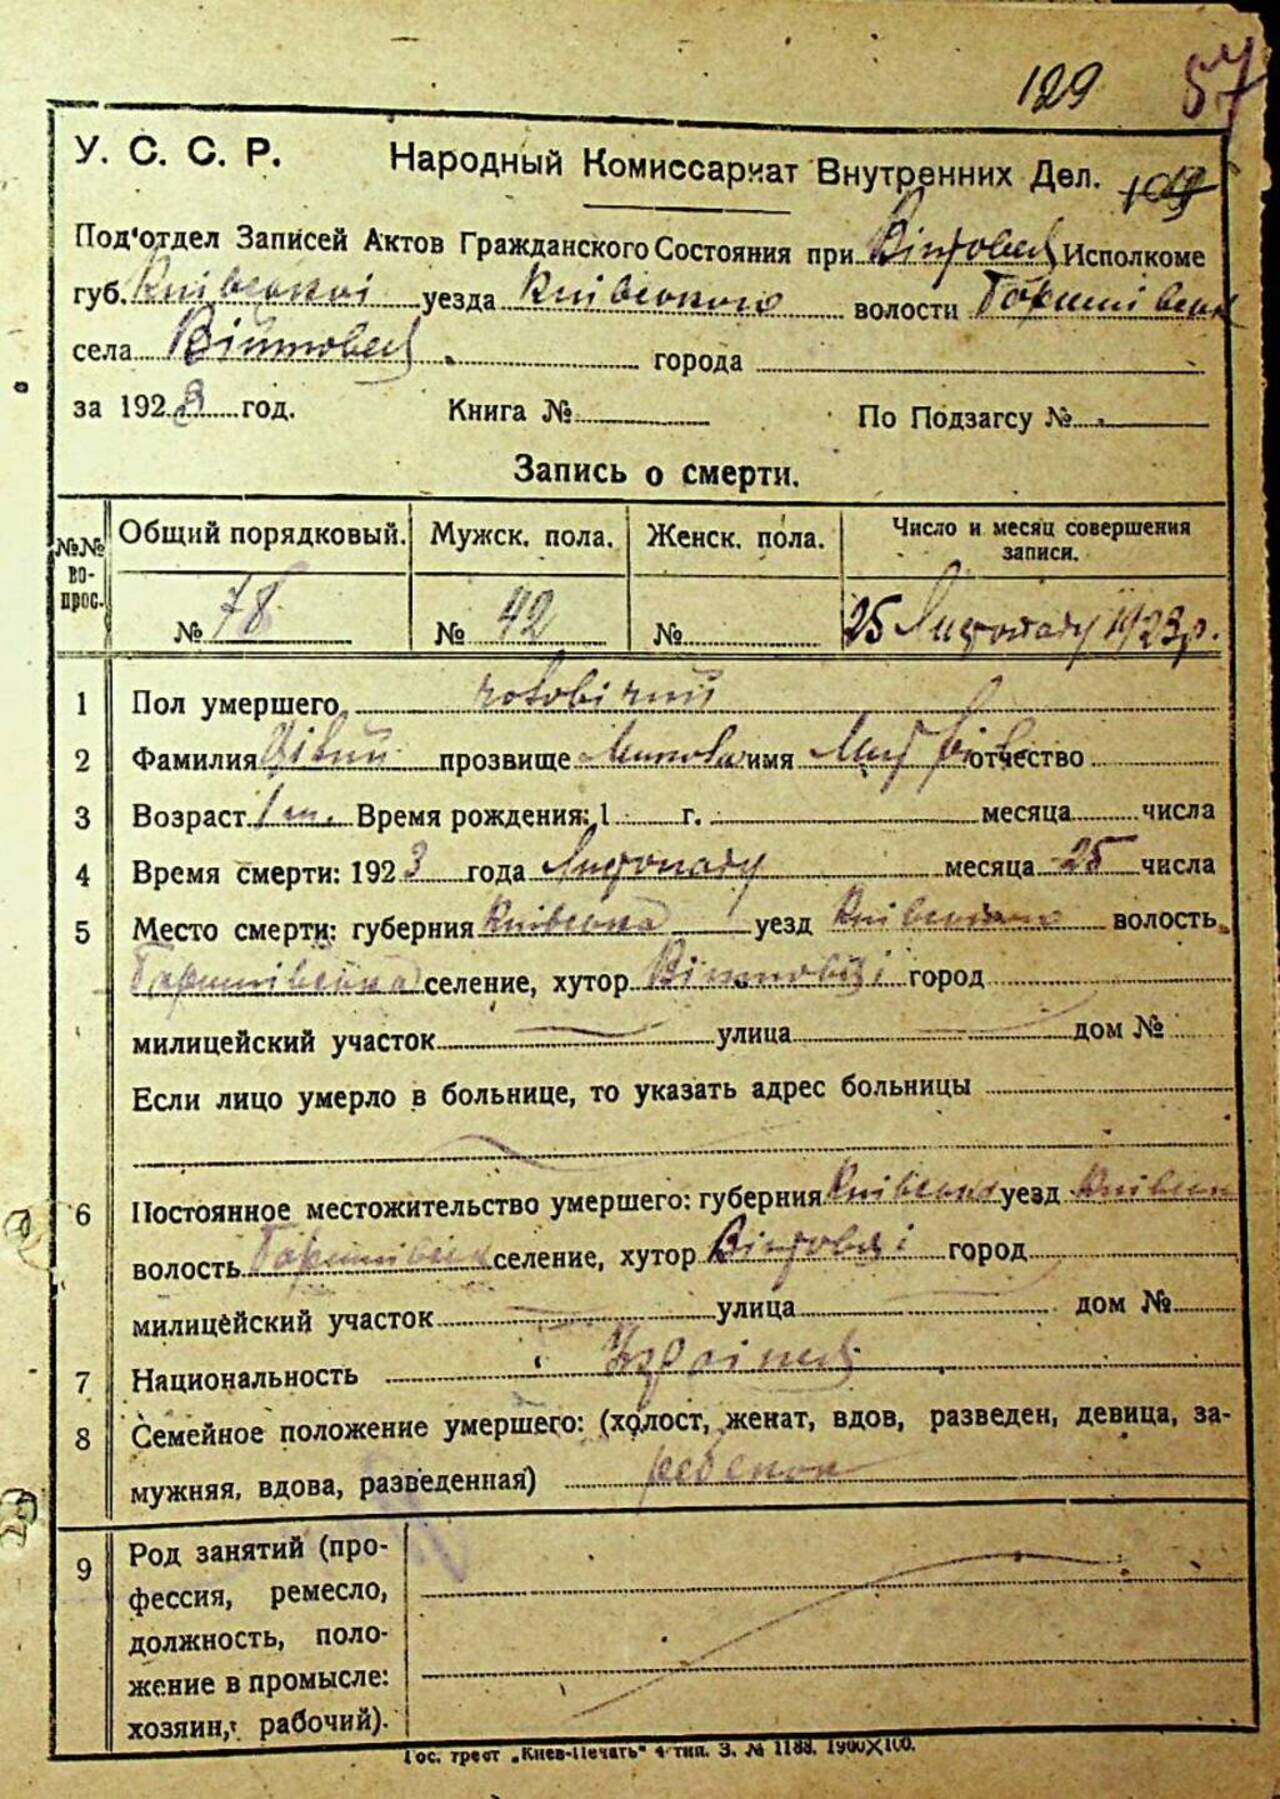 129 57
У. С. С. Р. Народный Комиссариат Внутренних Дел. 109
Под'отдел Записей Актов Гражданского Состояния при Исполкоме
губ. Київської уезда Київського волости
села города
за 1923 год. Книга № По Подзагсу №
Запись о смерти.
№№ вопрос. Общий порядковый. Мужск. пола. Женск. пола. Число и месяц совершения записи.
№ 78 № 42 № 25 Листопаду 1923 р.
1 Пол умершего чоловічий
2 Фамилия прозвище имя отчество
3 Возраст 1 Время рождения: 1 г. месяца числа
4 Время смерти: 1923 года Листопаду месяца 25 числа
5 Место смерти: губерния Київська уезд Київського волость
селение, хутор город
милицейский участок улица дом №
Если лицо умерло в больнице, то указать адрес больницы
6 Постоянное местожительство умершего: губерния Київська уезд Київськ
волость селение, хутор город
милицейский участок улица дом №
7 Национальность Українец
8 Семейное положение умершего: (холост, женат, вдов, разведен, девица, за-
мужняя, вдова, разведенная) ребенок
9 Род занятий (про-
фессия, ремесло,
должность, поло-
жение в промысле:
хозяин, рабочий).
Гос. трест „Киев-Печать" 4 тип. З. № 1188. 1900×100.